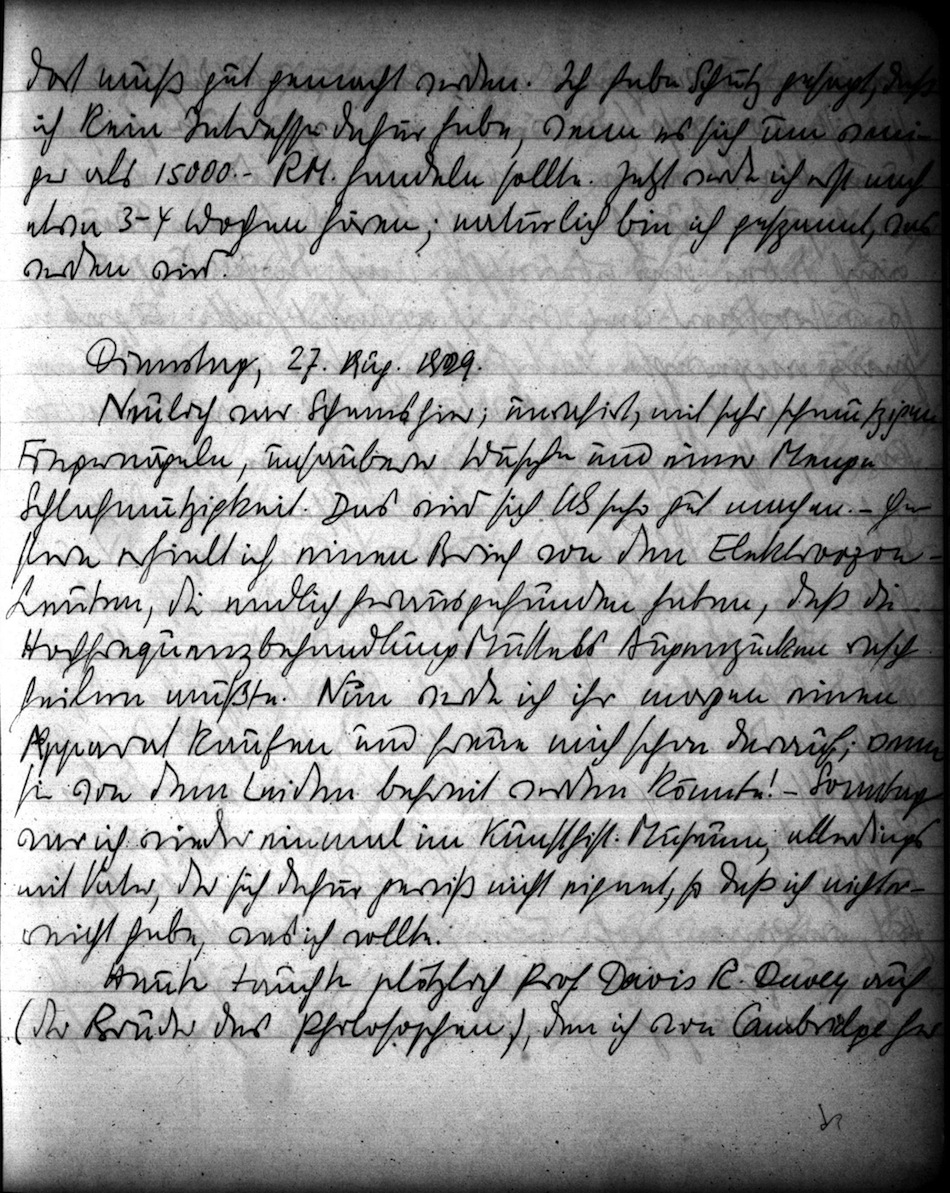 dort muß gut gemacht werden. Ich habe Schütz gesagt, daß
ich kein Interesse dafür habe, wenn es sich um weni-
ger als 15000.- RM. handeln sollte. Jetzt werde ich erst nach
etwa 3-4 Wochen hören; natürlich bin ich gespannt, was
werden wird.
Dienstag, 27. Aug. 1929.
Neulich war Schams hier; unrasirt, mit sehr schmutzigen
Fingernägeln, unsauberer Wäsche und einer Menge
Schlafmützigkeit. Das wird sich US sehr gut machen. - Ge-
stern erhielt ich einen Brief von den Elektrozon-
Leuten, die endlich herausgefunden haben, daß die
Hochfrequenzbehandlung Mutters Augenzucken rasch
heilen müßte. Nun werde ich ihr morgen einen
Apparat kaufen und freue mich schon darauf; wenn
sie von dem Leiden befreit werden könnte! - Sonntag
war ich wieder einmal im Kunsthist. Museum, allerdings
mit Vater, der sich dafür gewiß nicht eignet, so daß ich nicht er-
reicht habe, was ich wollte.
Heute tauchte plötzlich Prof. Davis R. Dewey auf
(der Bruder des Philosophen), den ich von Cambridge her